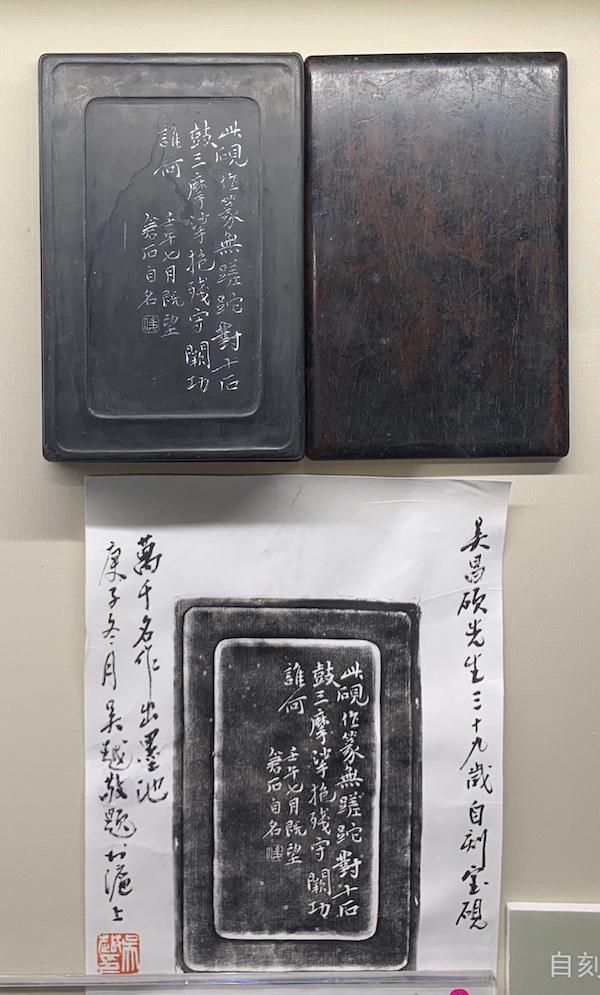 此硯作篆無蹉跎對十石
鼓三摩挲抱殘守闕功
誰何
壬午七月既望
蒼石自名
吳昌碩先生三十九歲自刻宝硯
此硯作篆無蹉跎對十石
鼓三摩挲抱殘守闕功
誰何
壬午七月既望
蒼石自名
萬千名作出墨池
庚子冬月吳越敬題於滬上
自刻